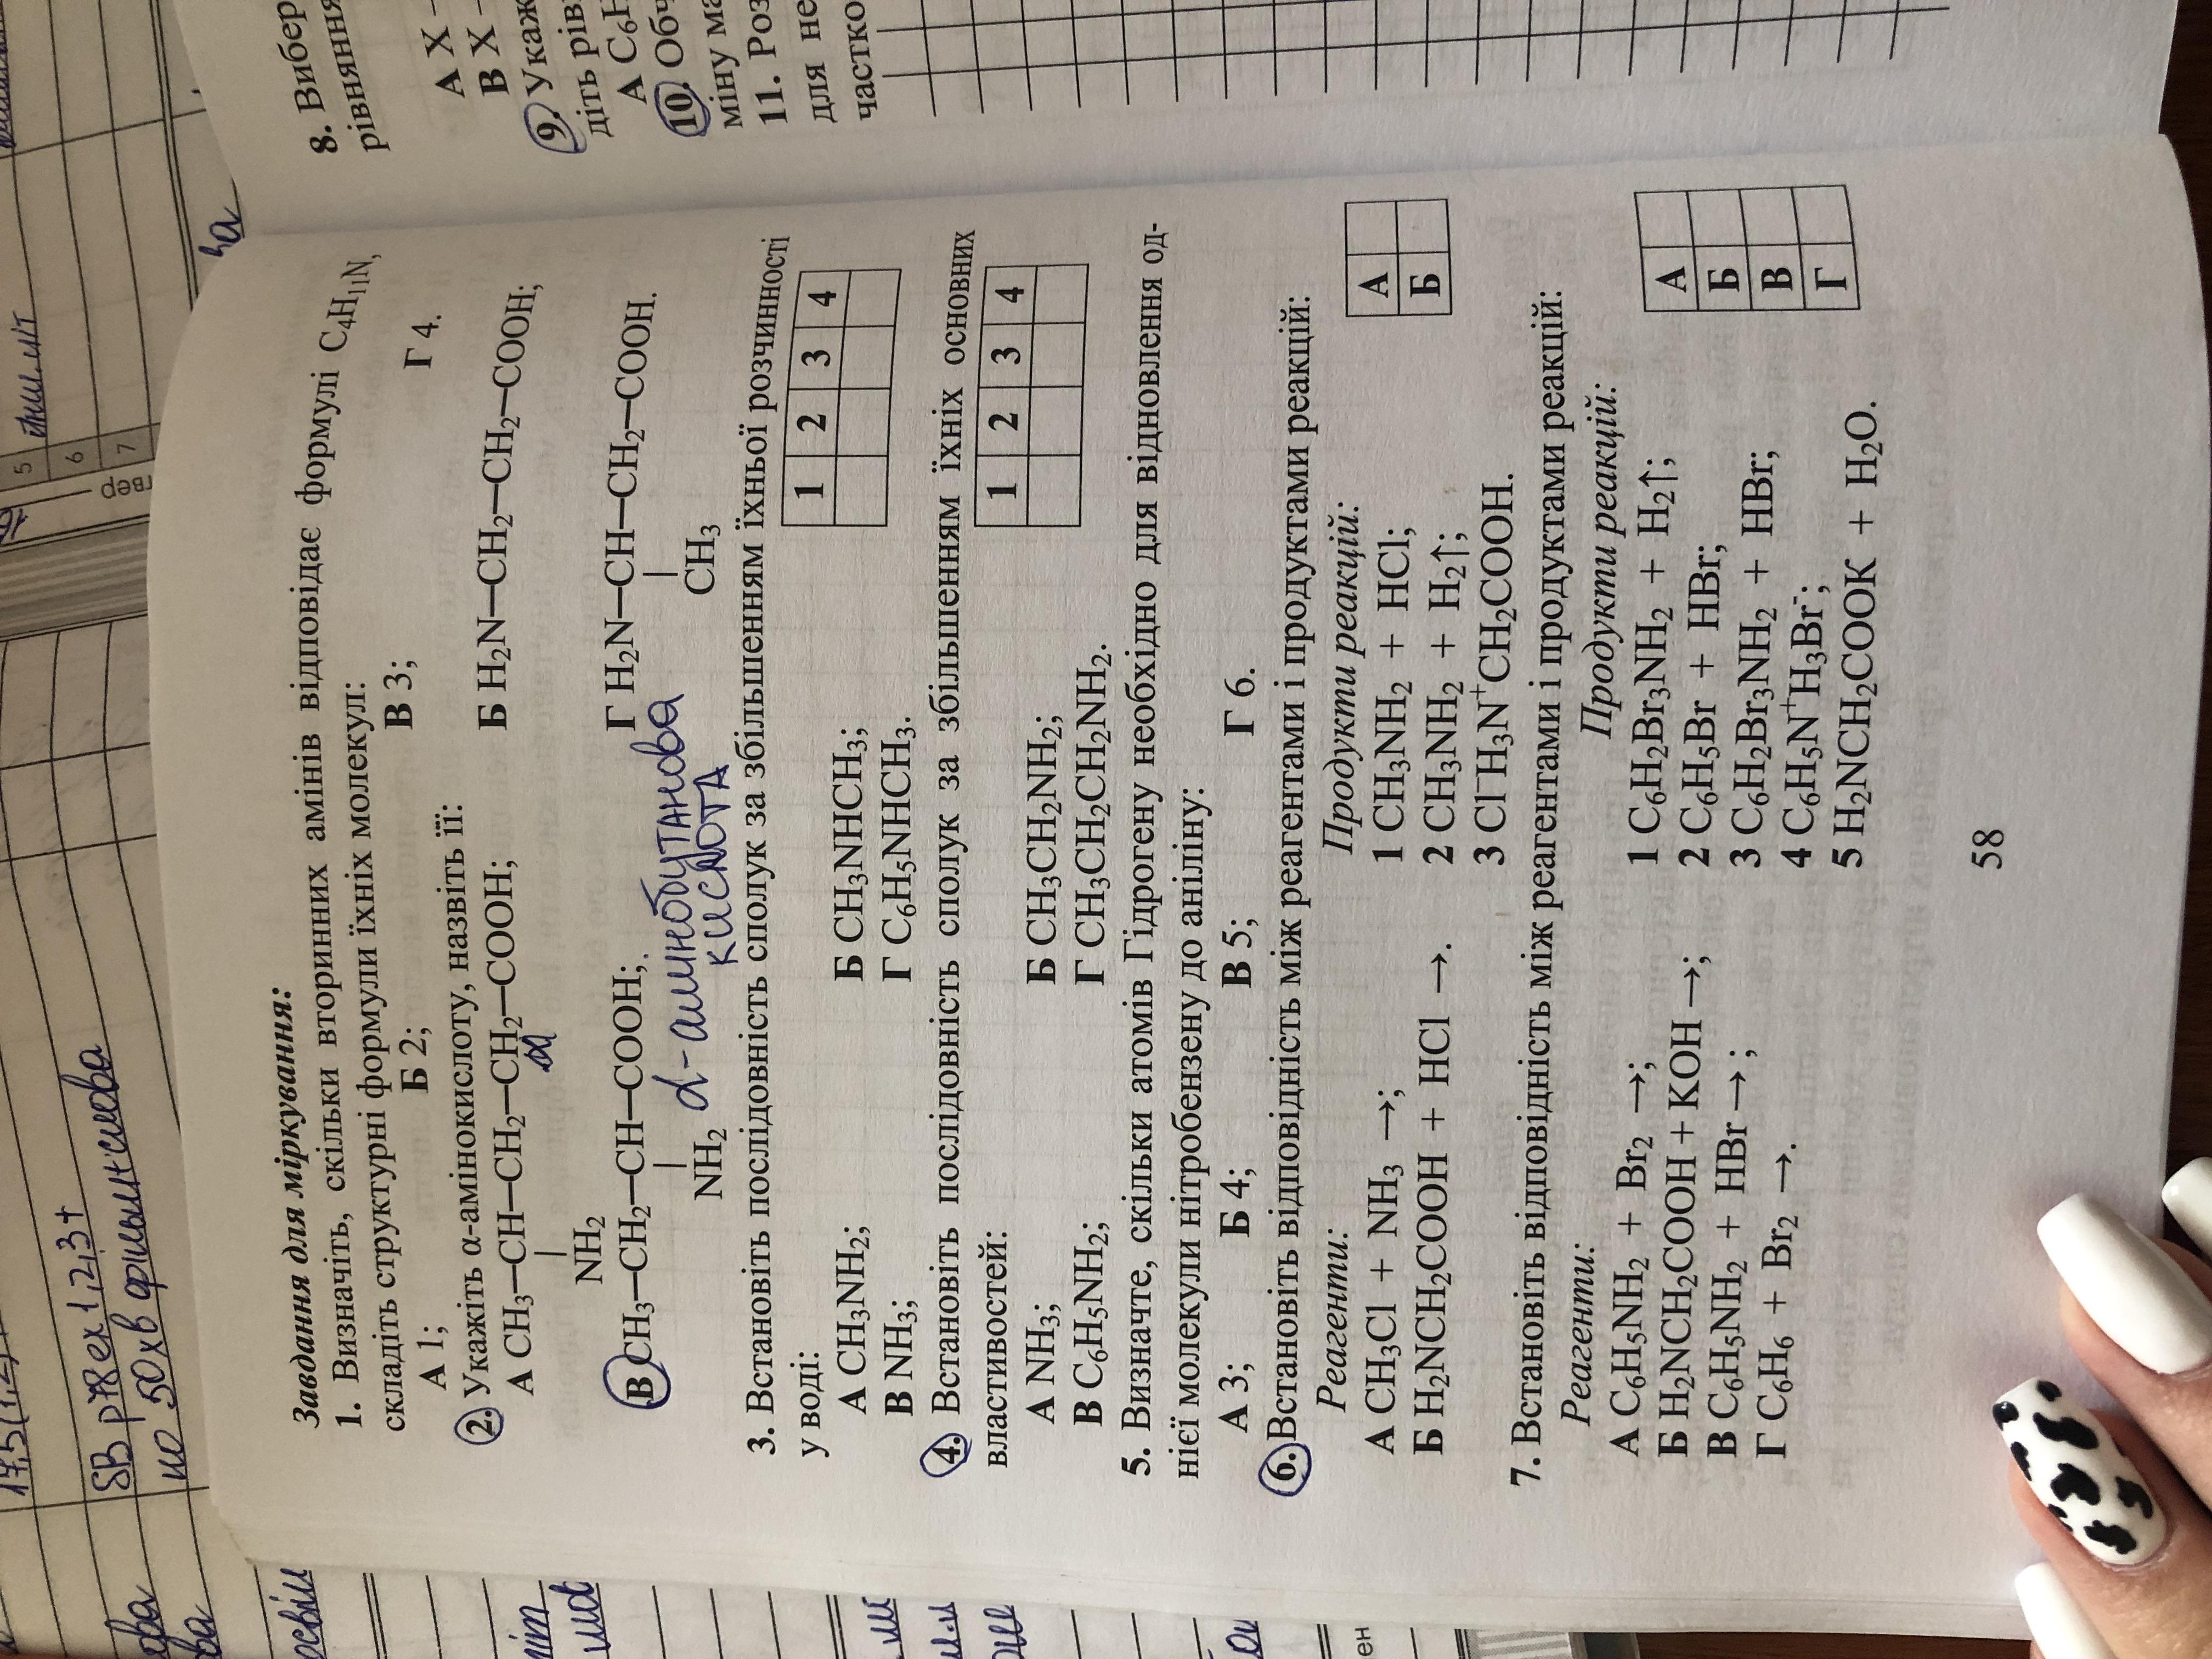 Завдання для міркування:
1. Визначіть, скільки вторинних амінів відповідає формулі C₄H₁₁N,
складіть структурні формули їхніх молекул:
А 1; Б 2; В 3; Г 4.
2. Укажіть α-амінокислоту, назвіть її:
А CH₃—CH—CH₂—CH₂—COOH; Б H₂N—CH₂—CH₂—CH₂—COOH;
NH₂
В CH₃—CH₂—CH—COOH; Г H₂N—CH—CH₂—COOH.
NH₂ CH₃
α-амінобутанова
кислота
3. Встановіть послідовність сполук за збільшенням їхньої розчинності
у воді:
А CH₃NH₂; Б CH₃NHCH₃;
В NH₃; Г C₆H₅NHCH₃.
1 2 3 4
4. Встановіть послідовність сполук за збільшенням їхніх основних
властивостей:
А NH₃; Б CH₃CH₂NH₂;
В C₆H₅NH₂; Г CH₃CH₂CH₂NH₂.
1 2 3 4
5. Визначте, скільки атомів Гідрогену необхідно для відновлення од-
нієї молекули нітробензену до аніліну:
А 3; Б 4; В 5; Г 6.
6. Встановіть відповідність між реагентами і продуктами реакцій:
Реагенти: Продукти реакцій:
А CH₃Cl + NH₃ →; 1 CH₃NH₂ + HCl;
Б H₂NCH₂COOH + HCl →. 2 CH₃NH₂ + H₂↑;
3 Cl⁻H₃N⁺CH₂COOH.
А
Б
7. Встановіть відповідність між реагентами і продуктами реакцій:
Реагенти: Продукти реакцій:
А C₆H₅NH₂ + Br₂ →; 1 C₆H₂Br₃NH₂ + H₂↑;
Б H₂NCH₂COOH + KOH →; 2 C₆H₅Br + HBr;
В C₆H₅NH₂ + HBr →; 3 C₆H₂Br₃NH₂ + HBr;
Г C₆H₆ + Br₂ →. 4 C₆H₅N⁺H₃Br⁻;
5 H₂NCH₂COOK + H₂O.
А
Б
В
Г
58
8. Вибер
рівняння
А X –
В X –
9. Укаж
діть рів
А C₆H
10. Обч
міну ма
11. Роз
для не
частко
5
6
7